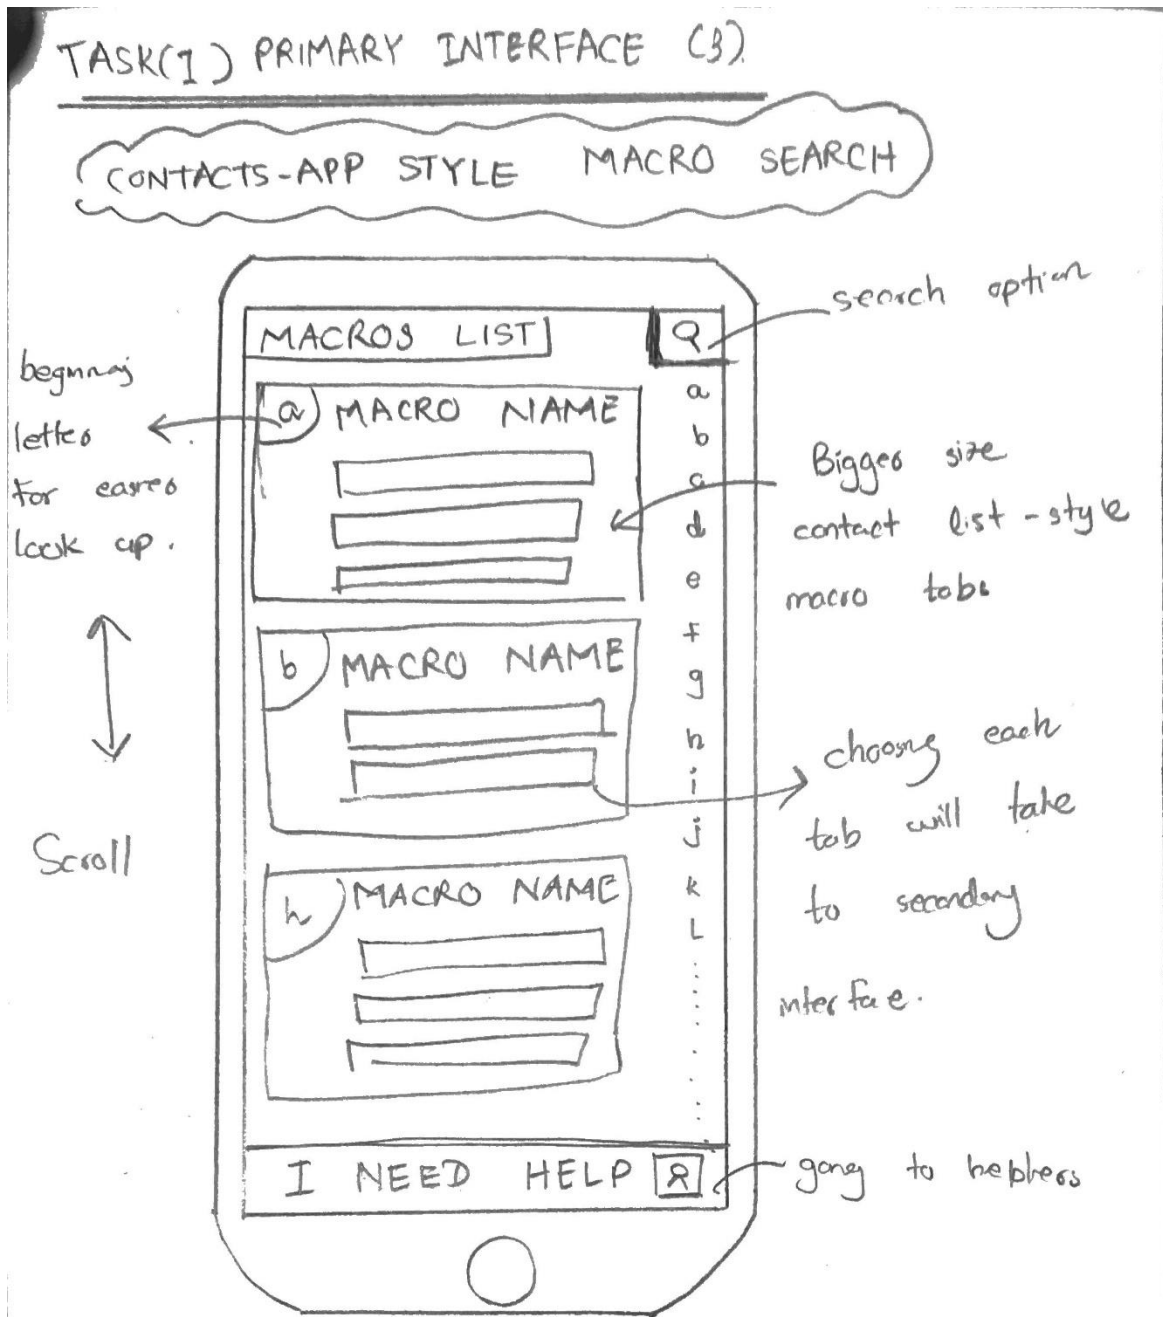 TASK(1) PRIMARY INTERFACE (3)
CONTACTS-APP STYLE MACRO SEARCH
search option
MACROS LIST
beginning
letter
for easier
look up.
a MACRO NAME
a
b
c
d
e
f
g
h
i
j
k
L
Bigger size
contact list-style
macro tabs
b MACRO NAME
Scroll
choosing each
tab will take
to secondary
interface.
h MACRO NAME
I NEED HELP
going to helpers